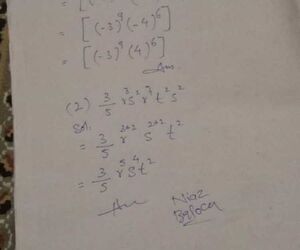 = [(-3)⁹ (-4)⁶]
= [(-3)⁹ (4)⁶]
Ans.
(2) 3/5 r³ s² r² t² s²
Sol.
= 3/5 r³⁺² s²⁺² t²
= 3/5 r⁵ s⁴ t²
Ans
Niaz
Baloch